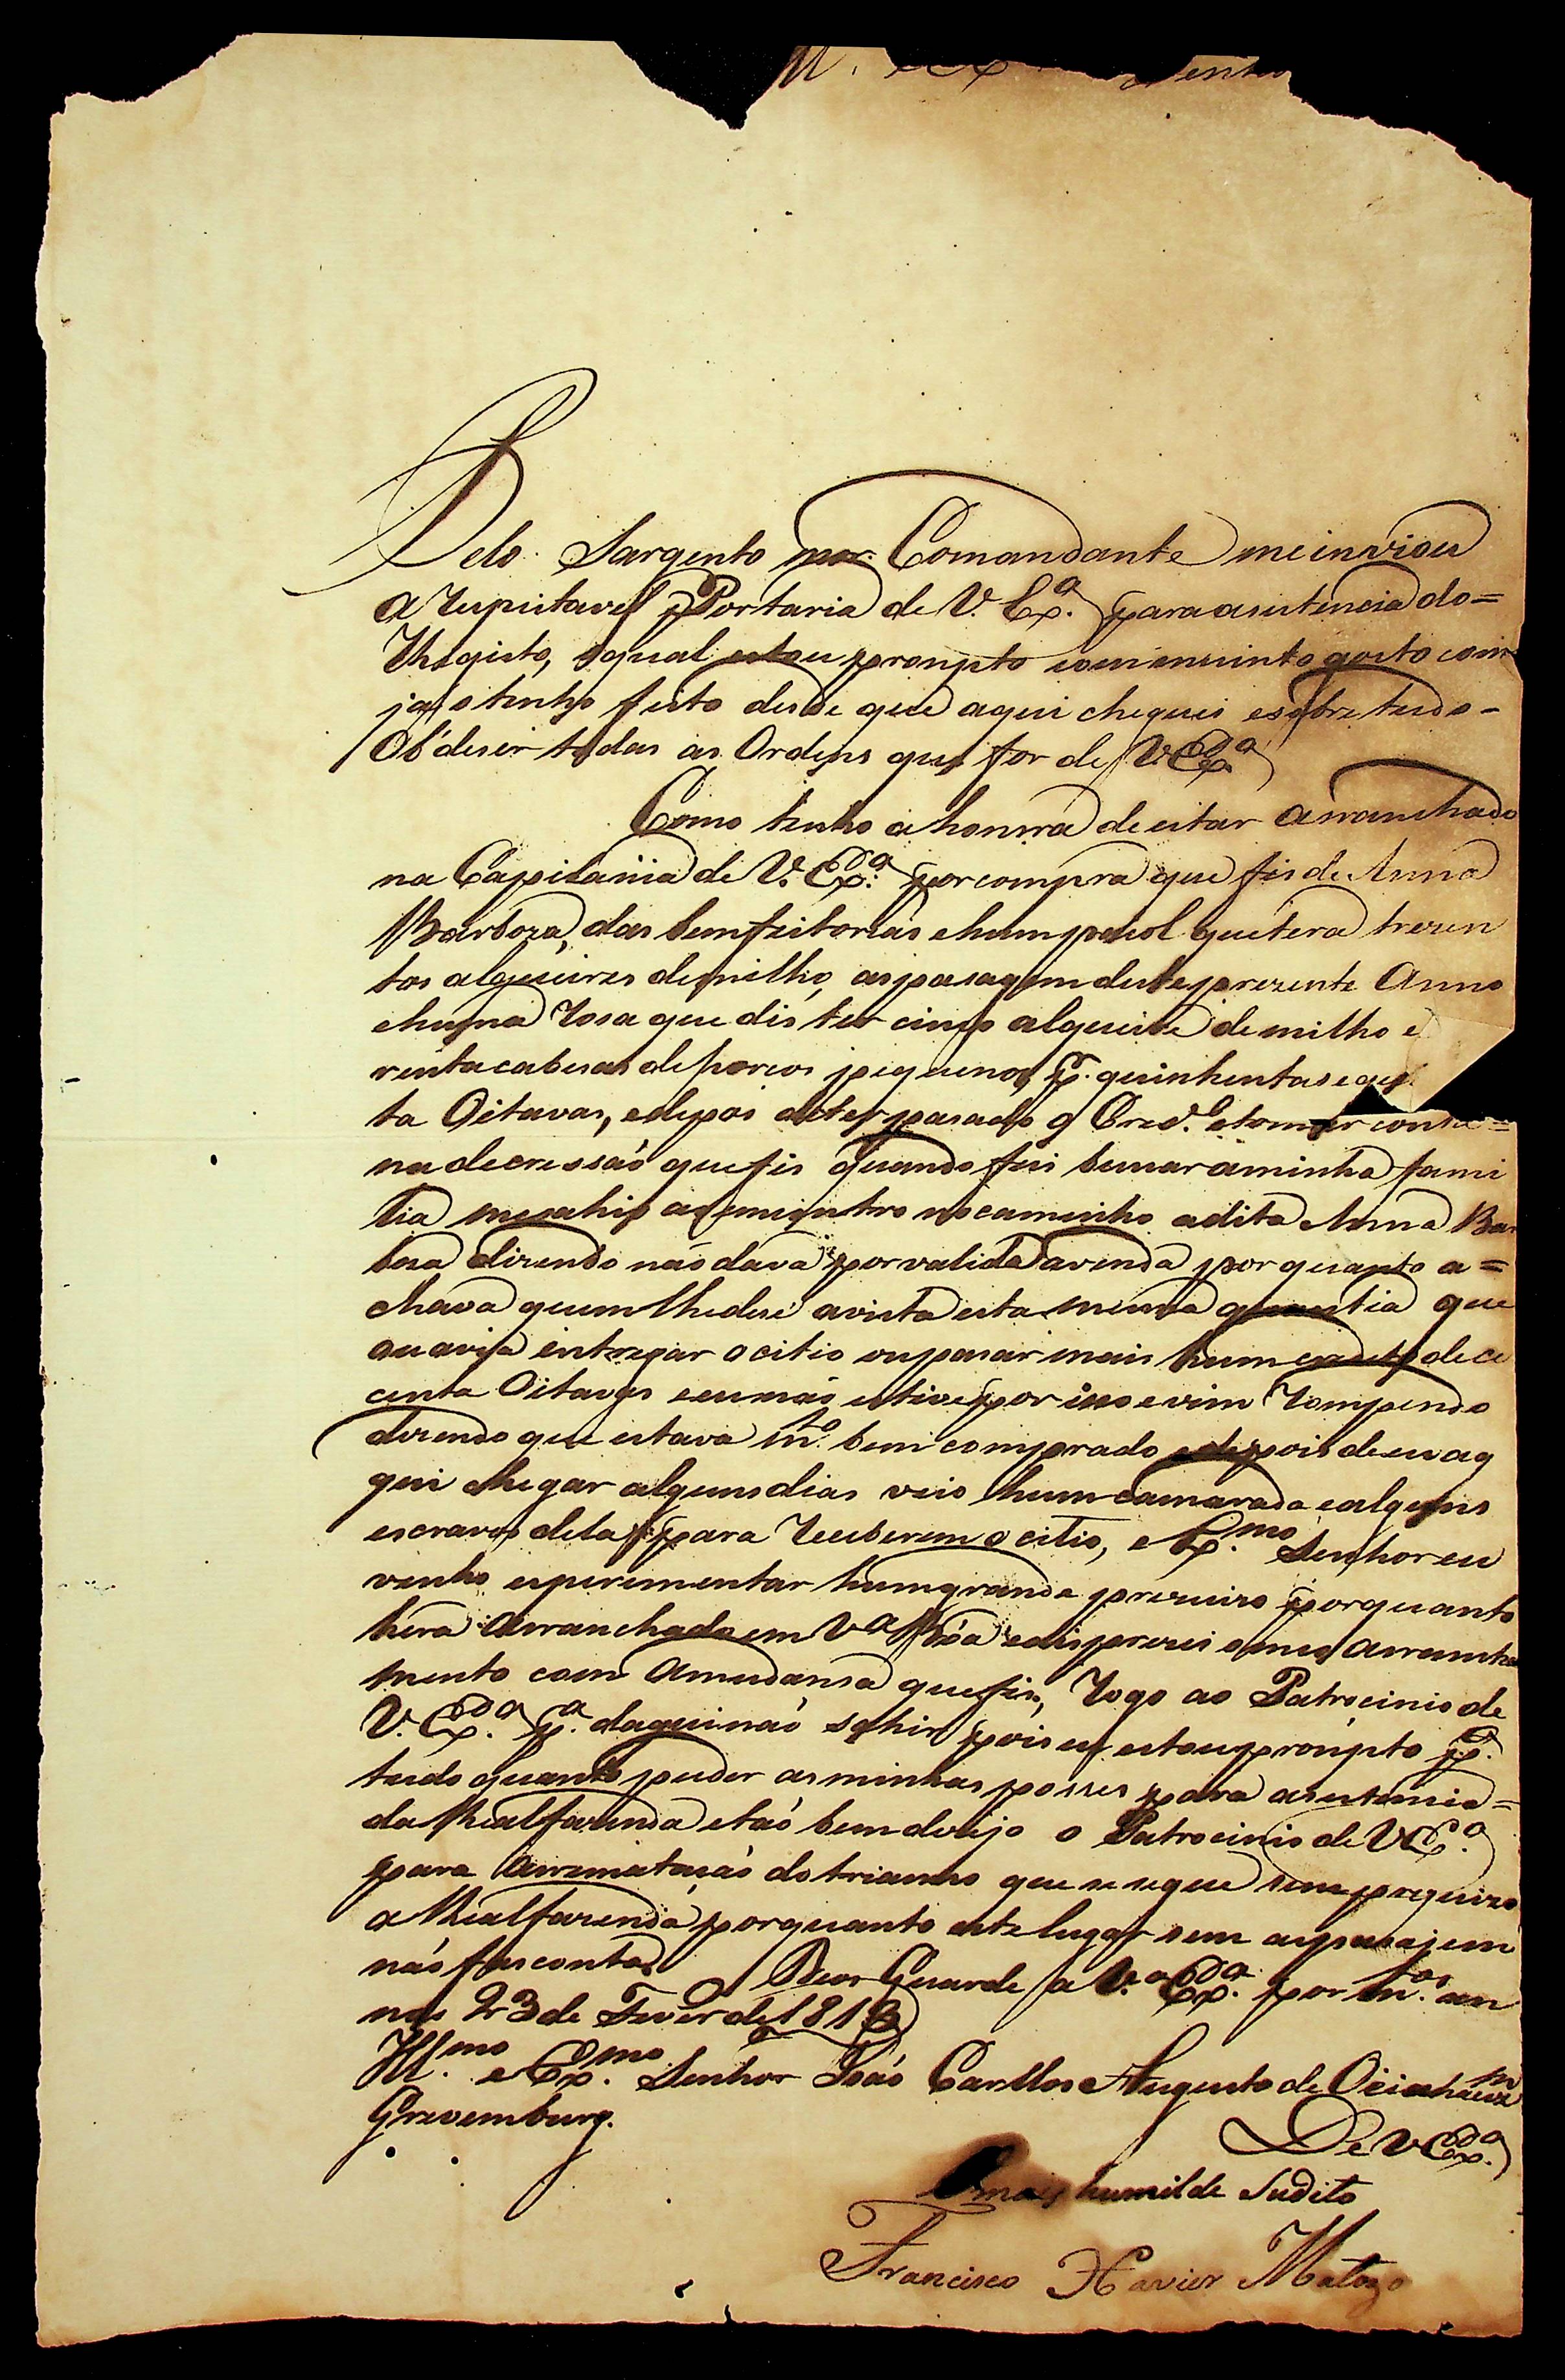 Pelo Sargento mor Comandante me inviou
a respeitavel Portaria de V. Exª. para asistencia do=
Rhegisto, o qual estou prompto com muinto gosto como
ja o tenho feito desde que aqui cheguei e sobre tudo-
Ob'deser todas as Ordens que for de V Exª
Como tenho a honrra de estar arranchado
na Capitania de V. Exª. por compra que fis de Anna
Barboza, das bemfeitorias e hum paiol que tera trezen
tos alqueires de milho, as pasagem deste prezente Anno
e huma rosa que dis ter cinco alqueire de milho e
renta cabesas de porcos pequenos, p. quinhentas e
ta Oitavas, e depois de ter pasado o Cred.º e tomar conta =
na decressaõ que fis quando fui buscar a minha fami
lia me sahio ao encontro no caminho a dita Anna Bar
boza dizendo naõ dava por valida a venda por quanto a=
chava quem lhe dese a vista esta mesma quantia que
ou avia entregar o citio ou pasar mais hum credito de ce
centa Oitavas e eu naõ estive por iso e vim rompendo
dizendo que estava m.to bem comprado e depois de eu aq
qui chegar alguns dias veio hum camarada e alguns
escravos dela para receberem o citio, e Ex.mo Senhor eu
venho esperementar hum grande prezuizo porquanto
hera arranchado em Vª Boa e disprezei o meu arrancha
mento com a mudansa que fis, rogo ao Patrocinio de
V. Exª. pª. daqui naõ sahir pois eu estou prompto p.
tudo quanto puder as minhas posses para asistencia=
da Rhealfazenda e taõ bem dezejo o Patrocinio de V Eª.
para arremataçaõ do trianno que se segue sem prejuizo
a Rhealfazenda porquanto este lugar sem as pasajem
naõ fas conta. Deos Guarde a V. Exª. por m.os an
nos 23 de Fever de 1813
Ill.mo e Ex.mo Senhor Joaõ Carllos Augusto de
Grevemburg.
De V Exª.
O mais humilde Sudito
Francisco Xavier Matozo